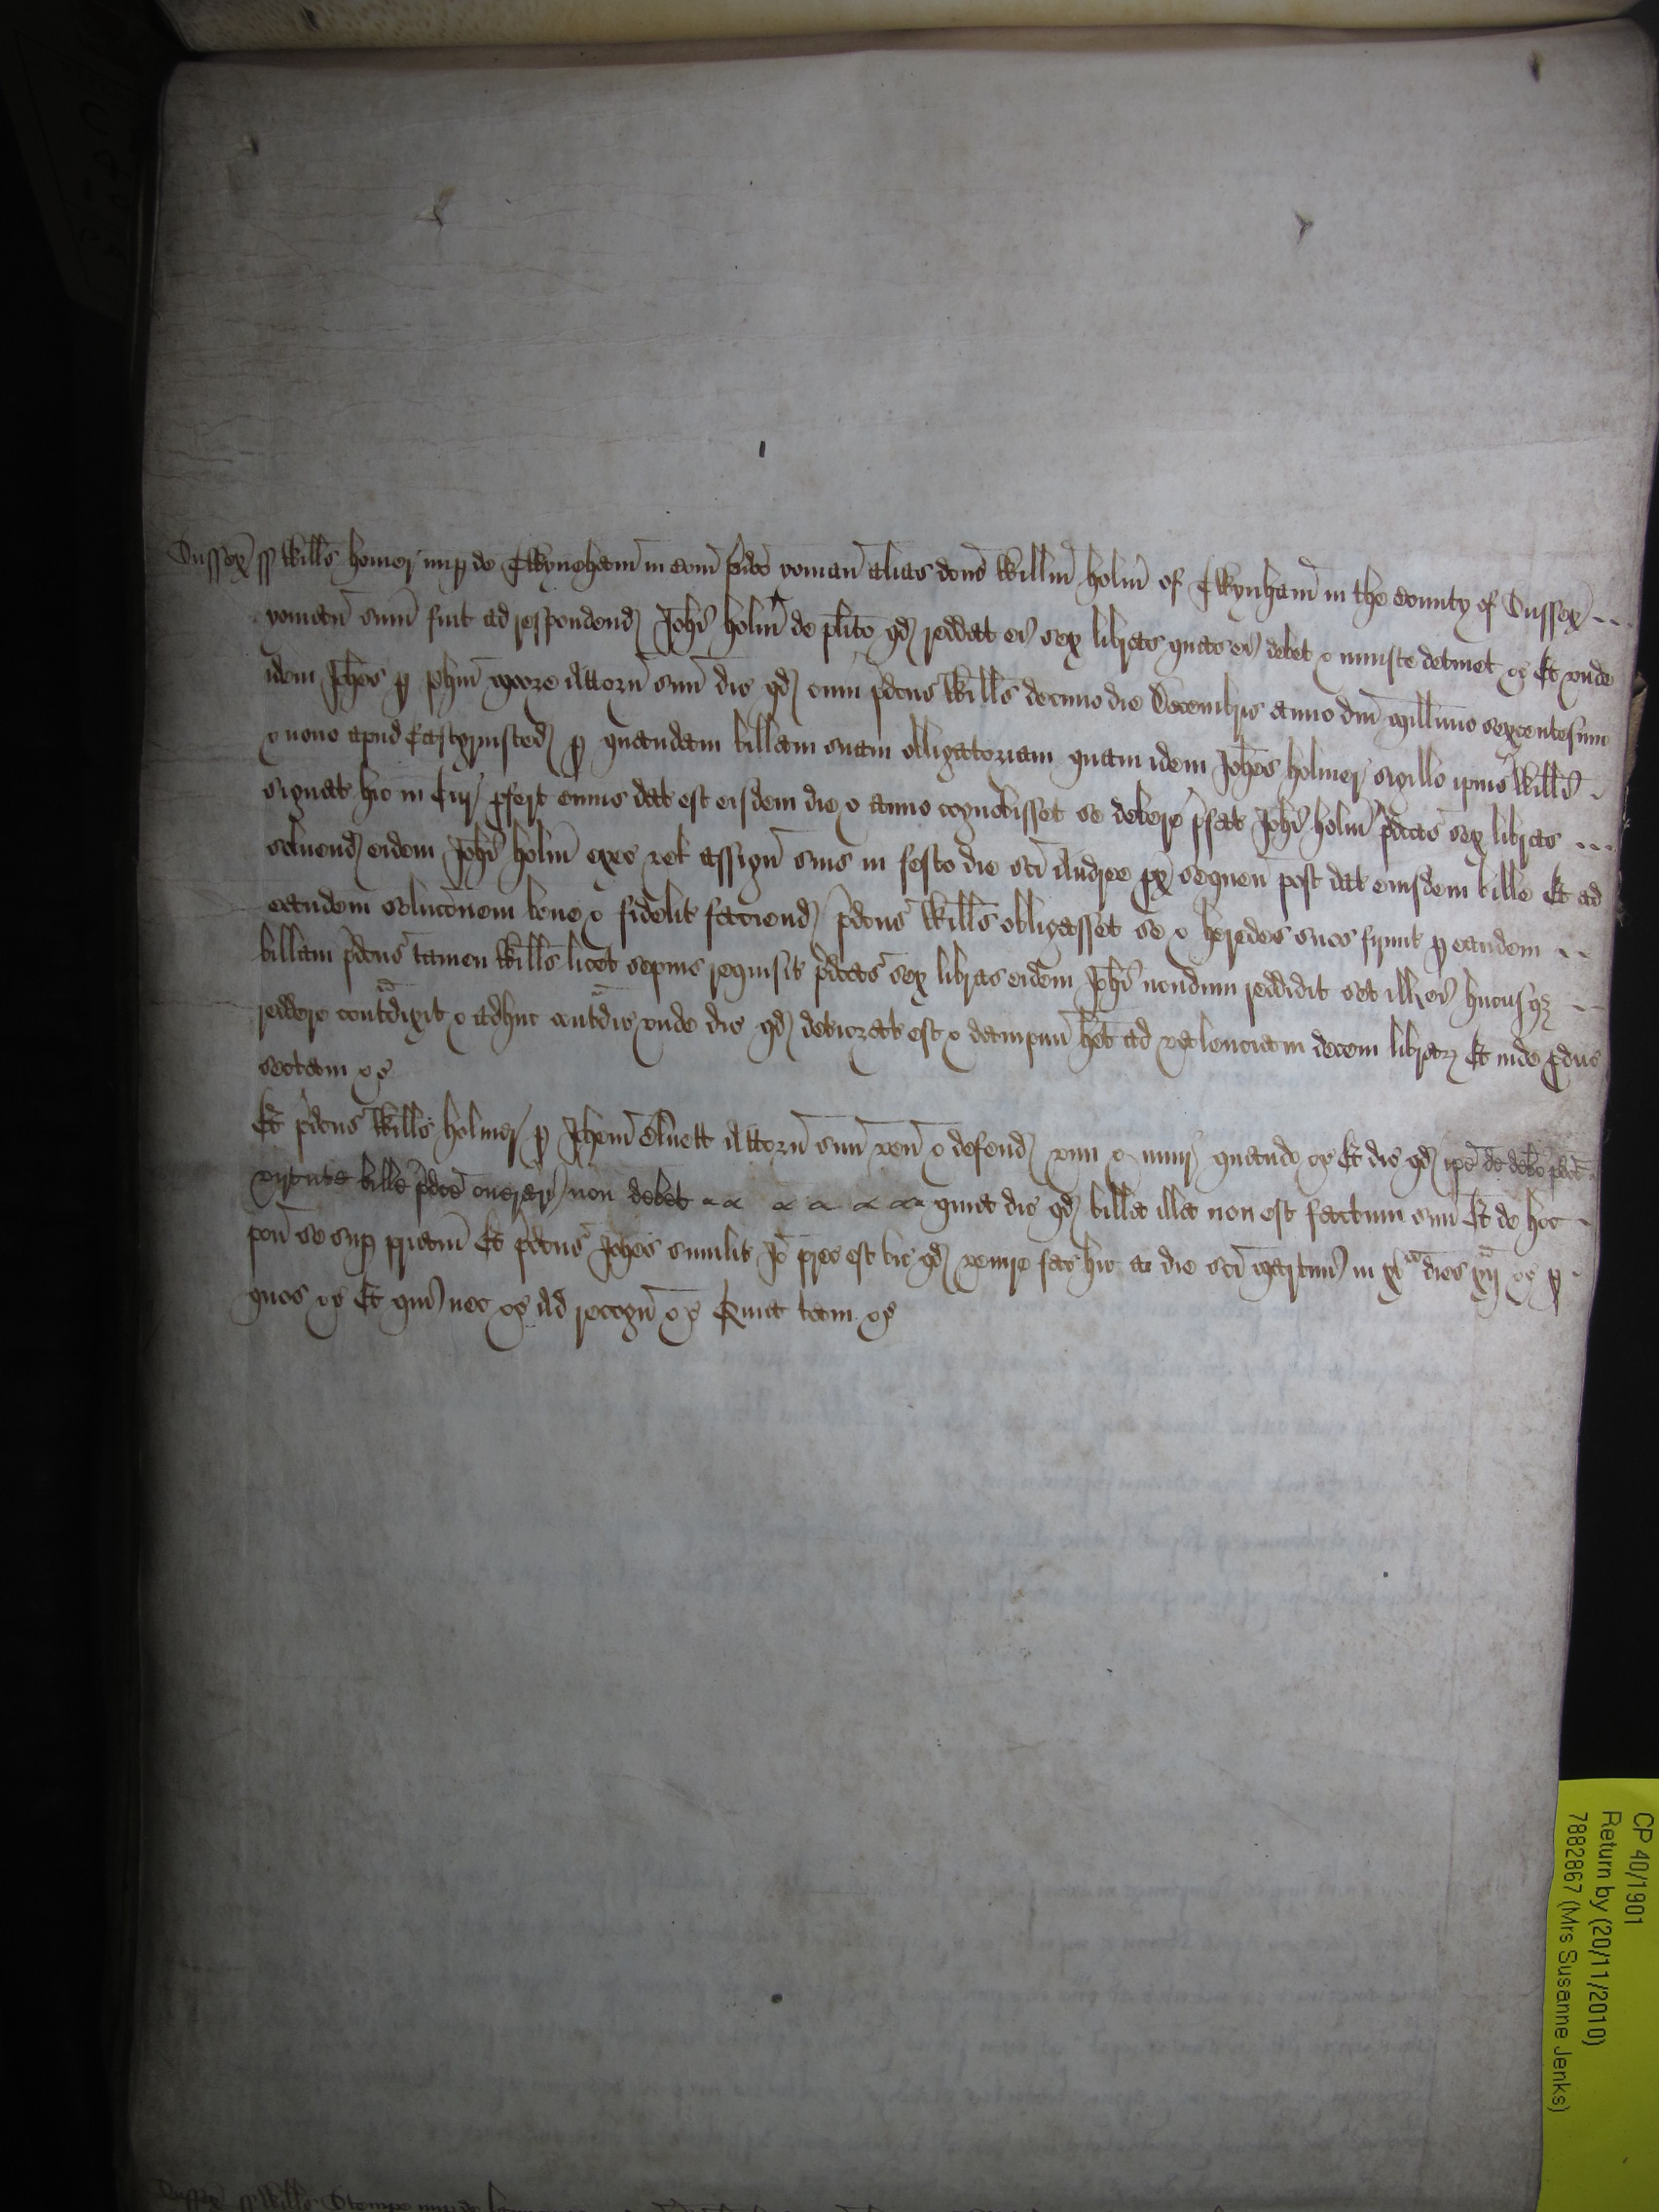 Sussex ss Wills homer nup de Twyneham in com pdco yoman alias dcus Willm holm of Twynham in the County of Sussex ...
yoman sum fuit ad respondend Johi holm de plito qd reddat ei sex libras quas ei debet & iniuste detinet &c Et unde
idem Johes p Johem more Attorn suu dic qd cum pdcus Wills decimo die Decembris anno dni millimo sexcentesimo
& nono apud Eastgrinsted p quandam billam suam obligatoriam quam idem Johes holmer sigillo ipius Willi -
signat hic in Cur pfert cuius dat est eisdem die & anno cognovisset se debere pfat Johi holm pdcas sex libras ...
solvend eidem Johi holm exec vel assign suis in festo die sci Andree px sequen post dat eiusdem bille Et ad
eandem solucionem bene & fidelit faciend pdcus Wills obligasset se & heredes suos firmit p eandem --
billam pdcus tamen Wills licet sepius requisit pdcas sex libras eidem Johi nondum reddidit set ill ei hucusqz --
reddere contradixit & adhuc contradic unde dic qd deteriorat est & dampnu het ad valenciam decem librar Et inde pduc
sectam &c
Et pdcus Wills holmer p Johem Attorn suu ven & defend vim & iniur quando &c Et dic qd ipe de debo pdco
virtute bille pdce onerari non debet quia dic qd billa illa non est factum suu Et de hoc -
pon se sup priam Et pdcus Johes similit Io prec est vic qd venire fac hic a die sci martini in xv dies xij &c p
quos &c Et qui nec &c Ad recogn &c Quia tam &c
Sussex ss Wills Stempe nup de
CP 40/1901
Return by (20/11/2010)
7882867 (Mrs Susanne Jenks)